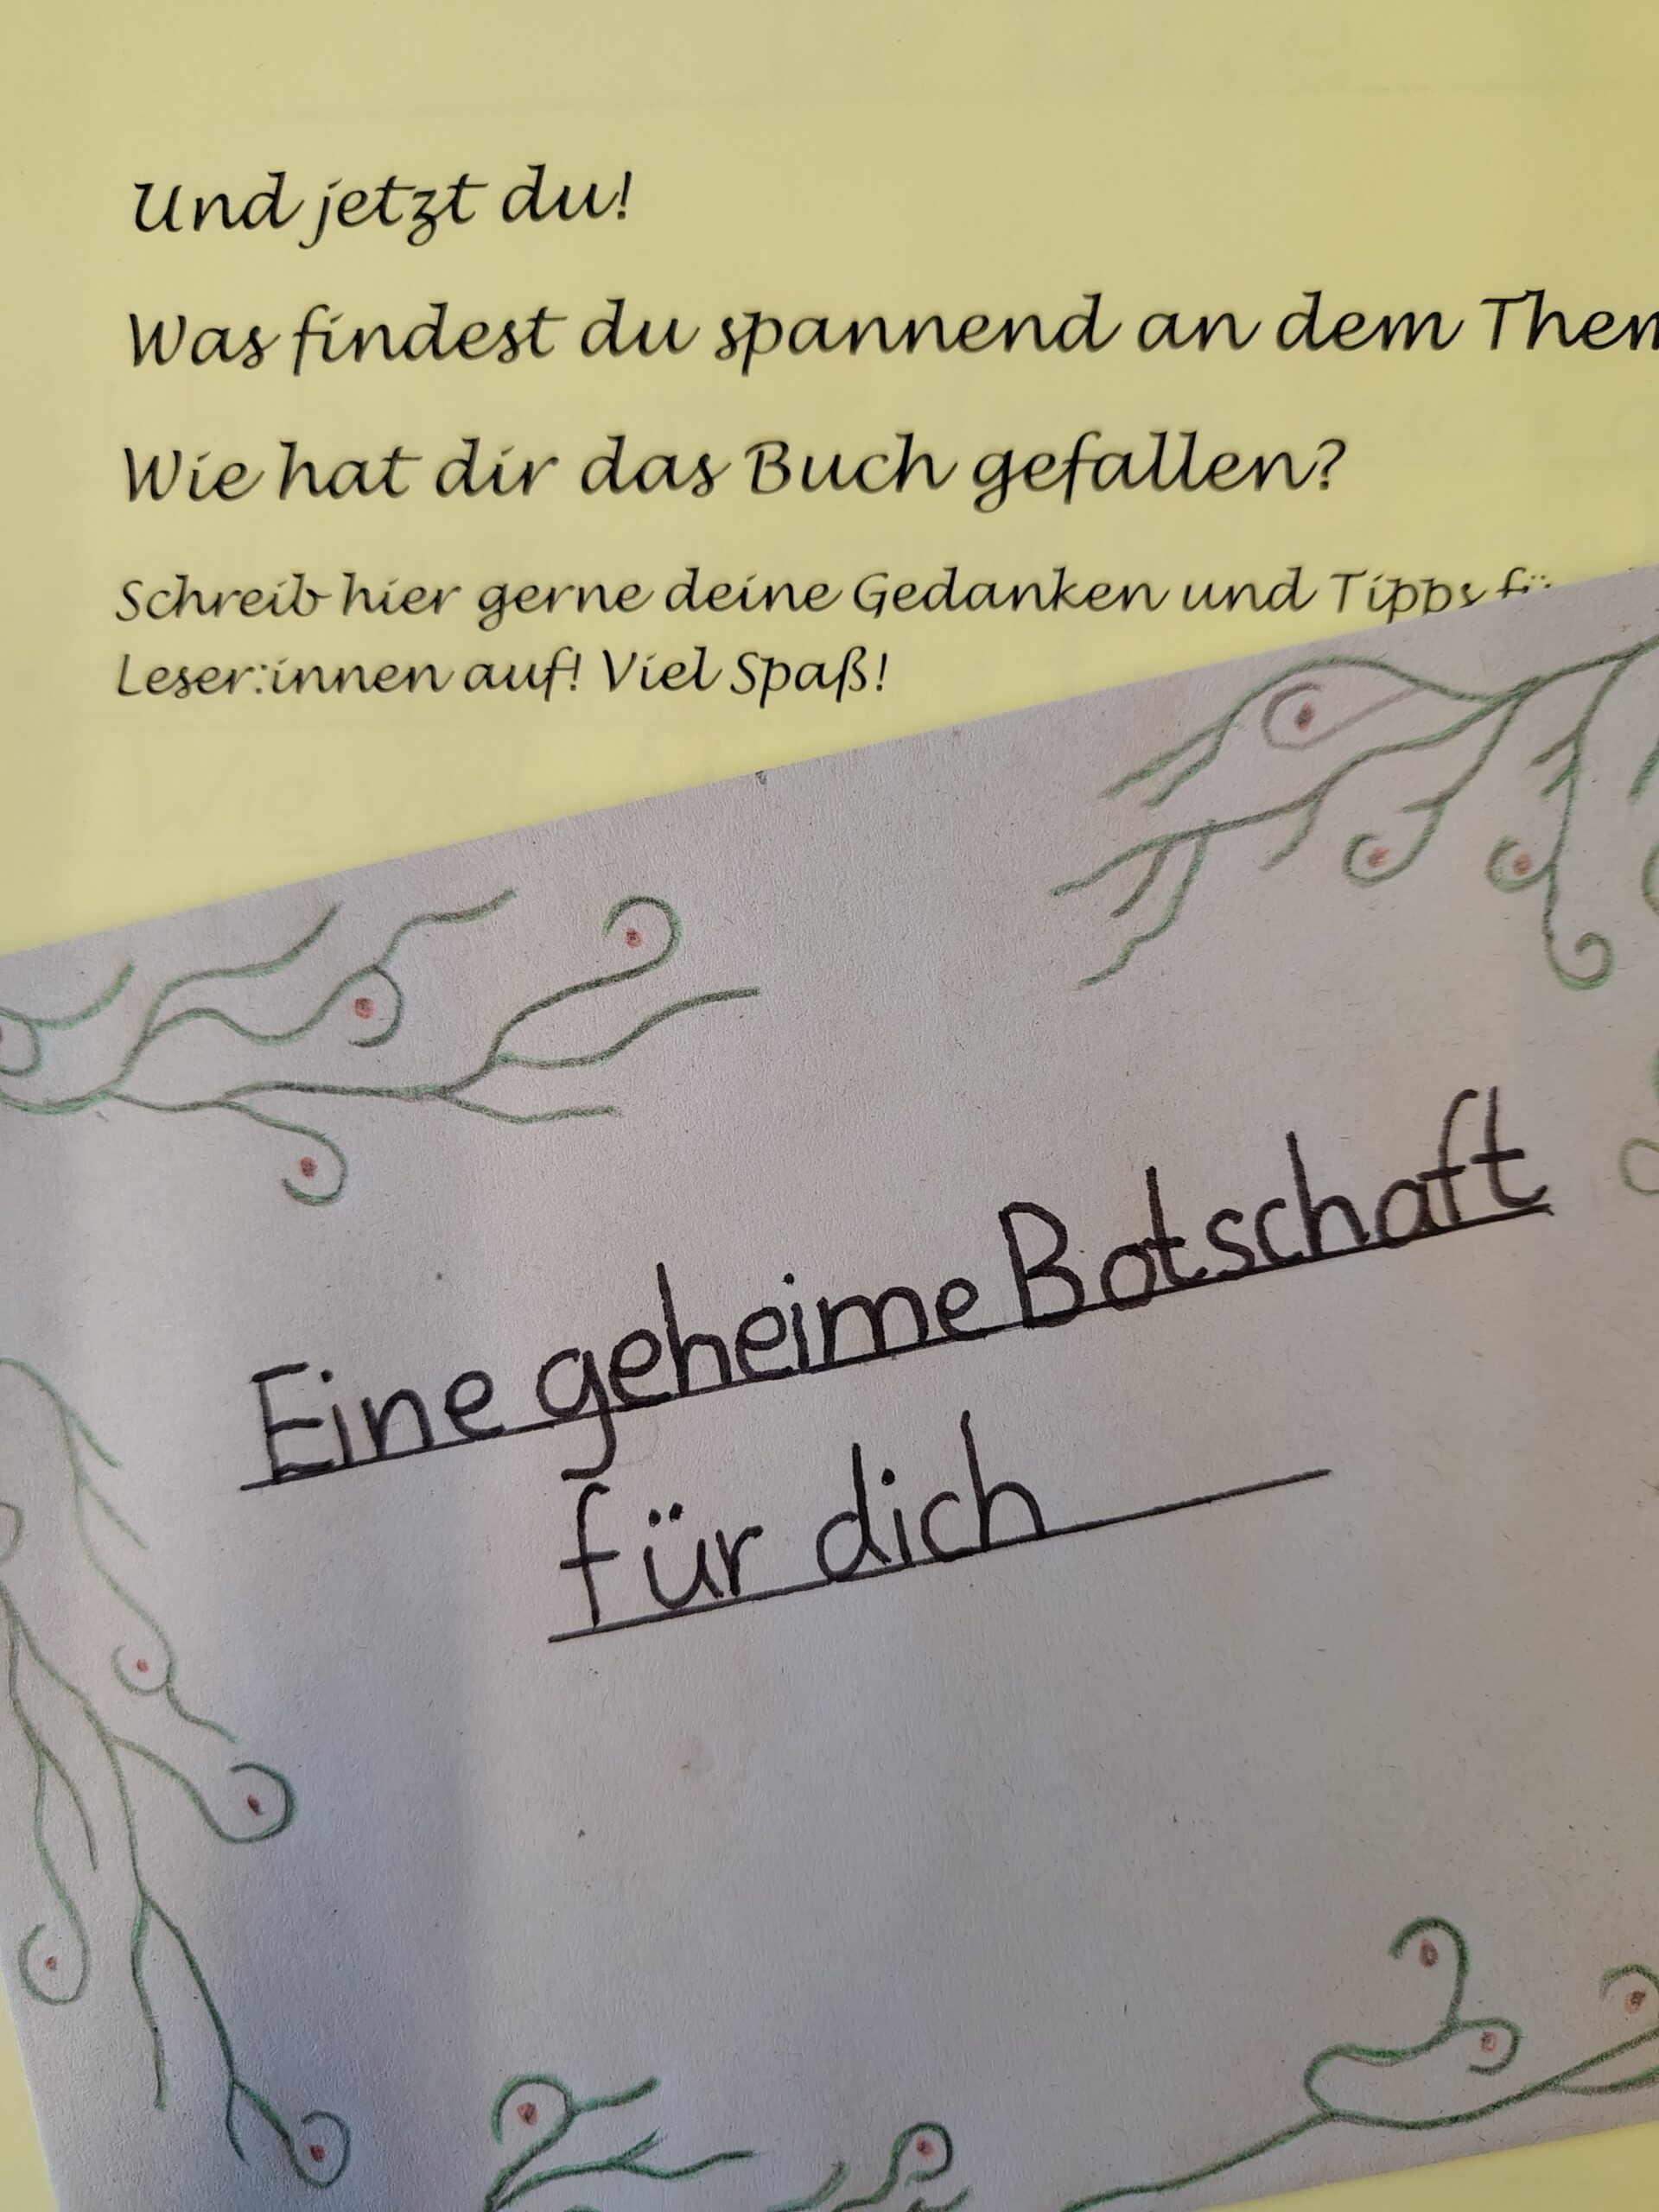 Und jetzt du!
Was findest du spannend an dem
Wie hat dir das Buch gefallen?
Schreib hier gerne deine Gedanken und Tipps
Leser:innen auf! Viel Spaß!
Eine geheime Botschaft
für dich